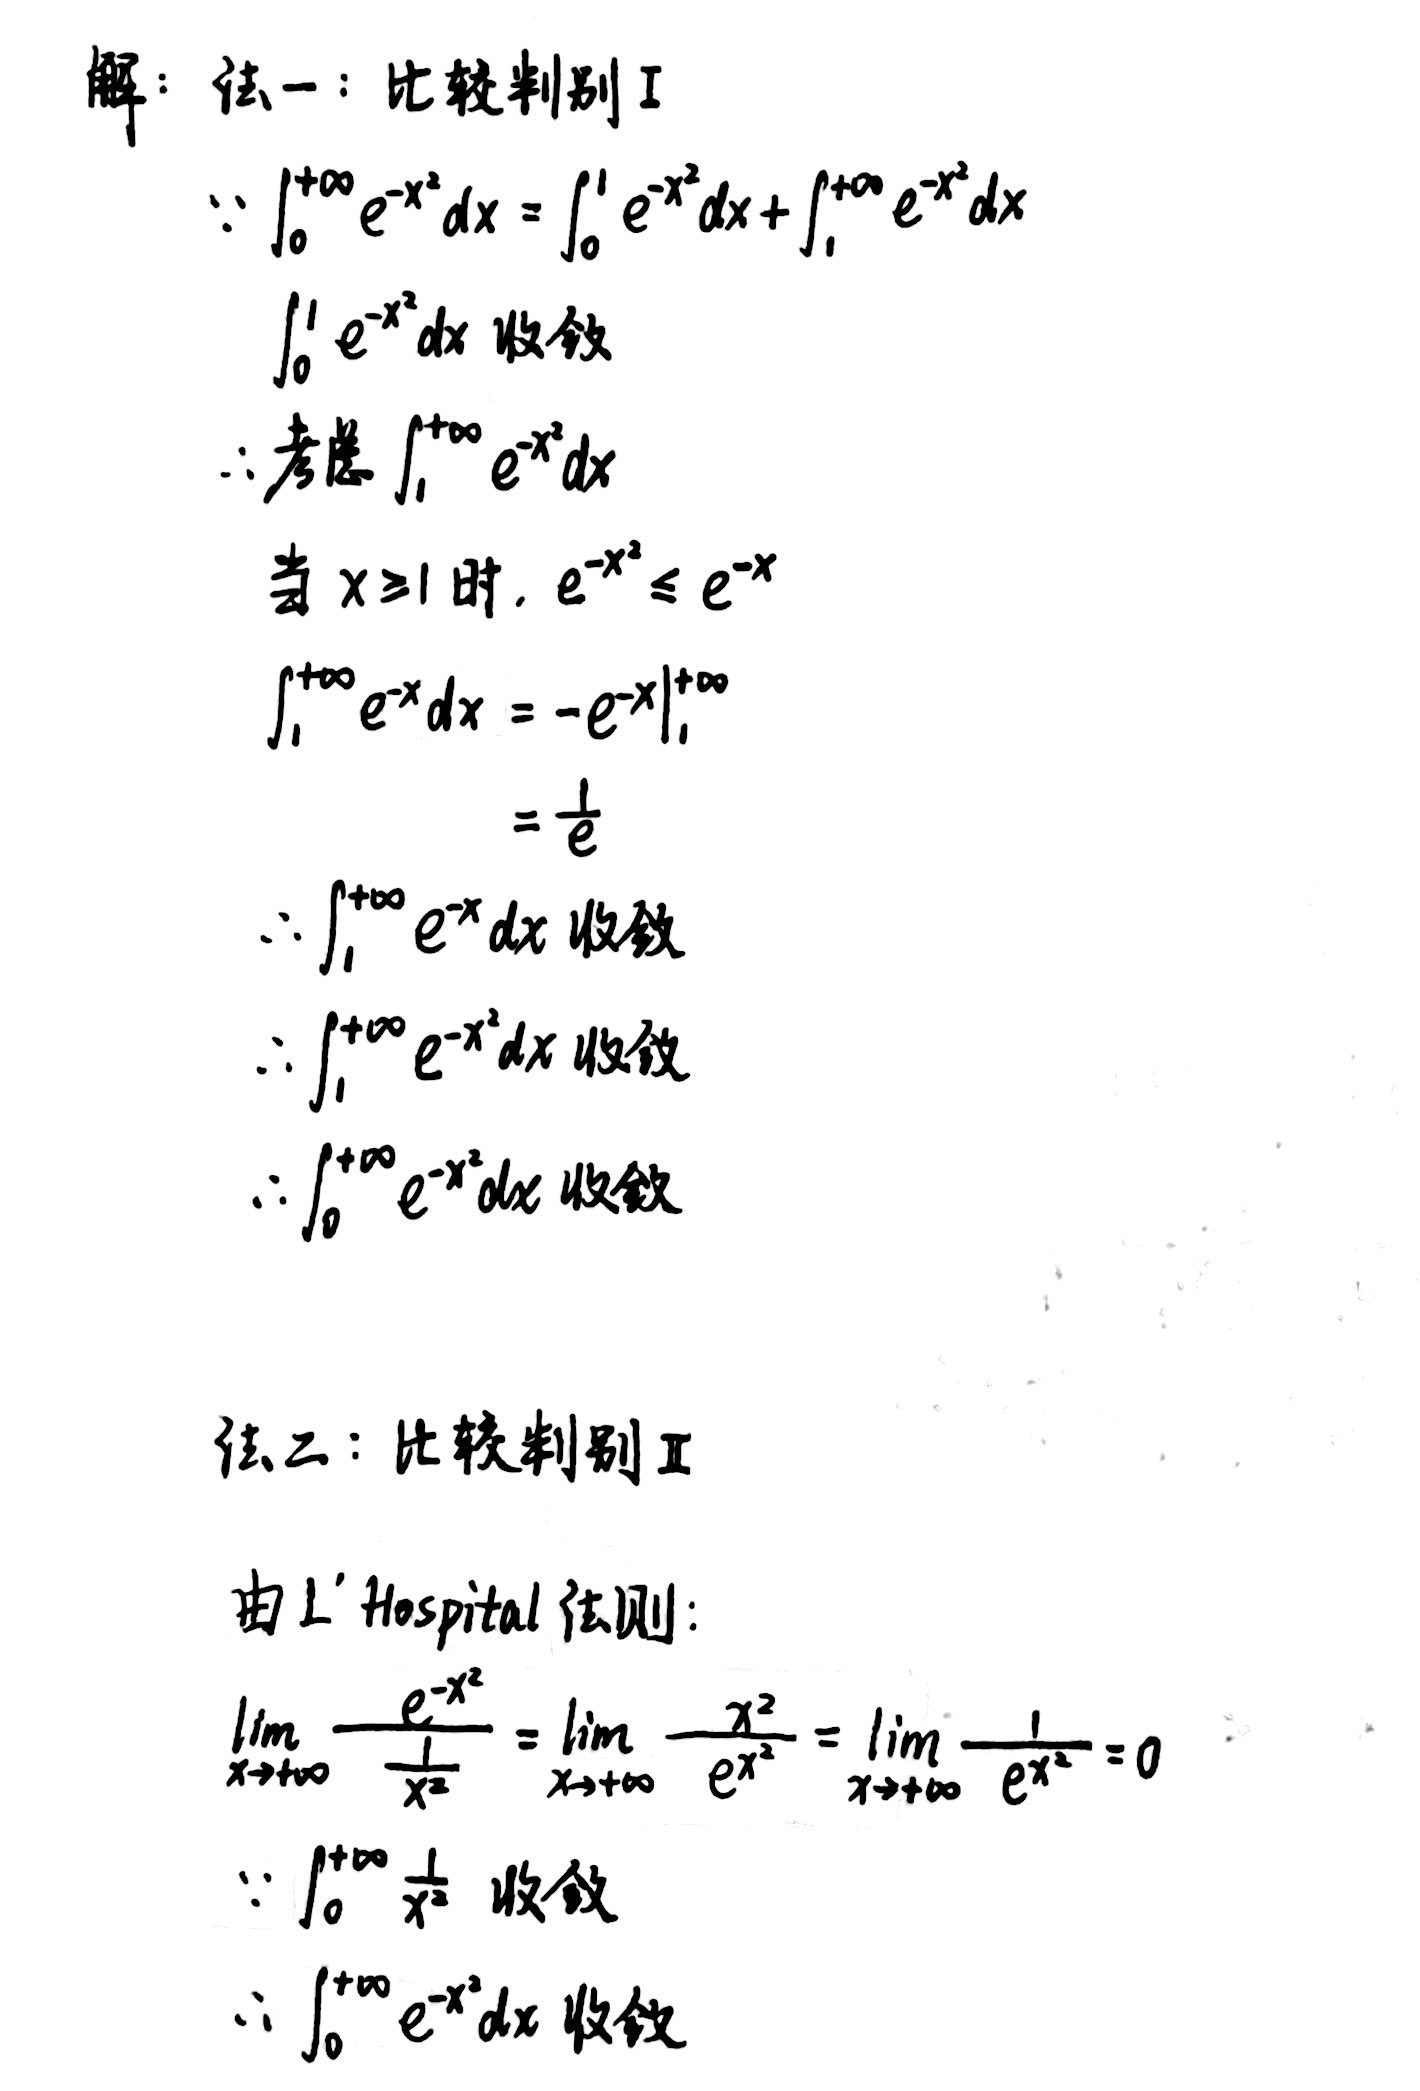 解：法一：比较判别 I
∵ ∫₀^{+∞} e^{-x²}dx = ∫₀^1 e^{-x²}dx + ∫₁^{+∞} e^{-x²}dx
∫₀^1 e^{-x²}dx 收敛
∴ 考虑 ∫₁^{+∞} e^{-x²}dx
当 x≥1 时, e^{-x²} ≤ e^{-x}
∫₁^{+∞} e^{-x}dx = -e^{-x}|₁^{+∞}
= 1/e
∴ ∫₁^{+∞} e^{-x}dx 收敛
∴ ∫₁^{+∞} e^{-x²}dx 收敛
∴ ∫₀^{+∞} e^{-x²}dx 收敛
法二：比较判别 II
由 L'Hospital 法则：
lim_{x→+∞} e^{-x²}/(1/x²) = lim_{x→+∞} x²/e^{x²} = lim_{x→+∞} 1/e^{x²} = 0
∵ ∫₀^{+∞} 1/x² 收敛
∴ ∫₀^{+∞} e^{-x²}dx 收敛